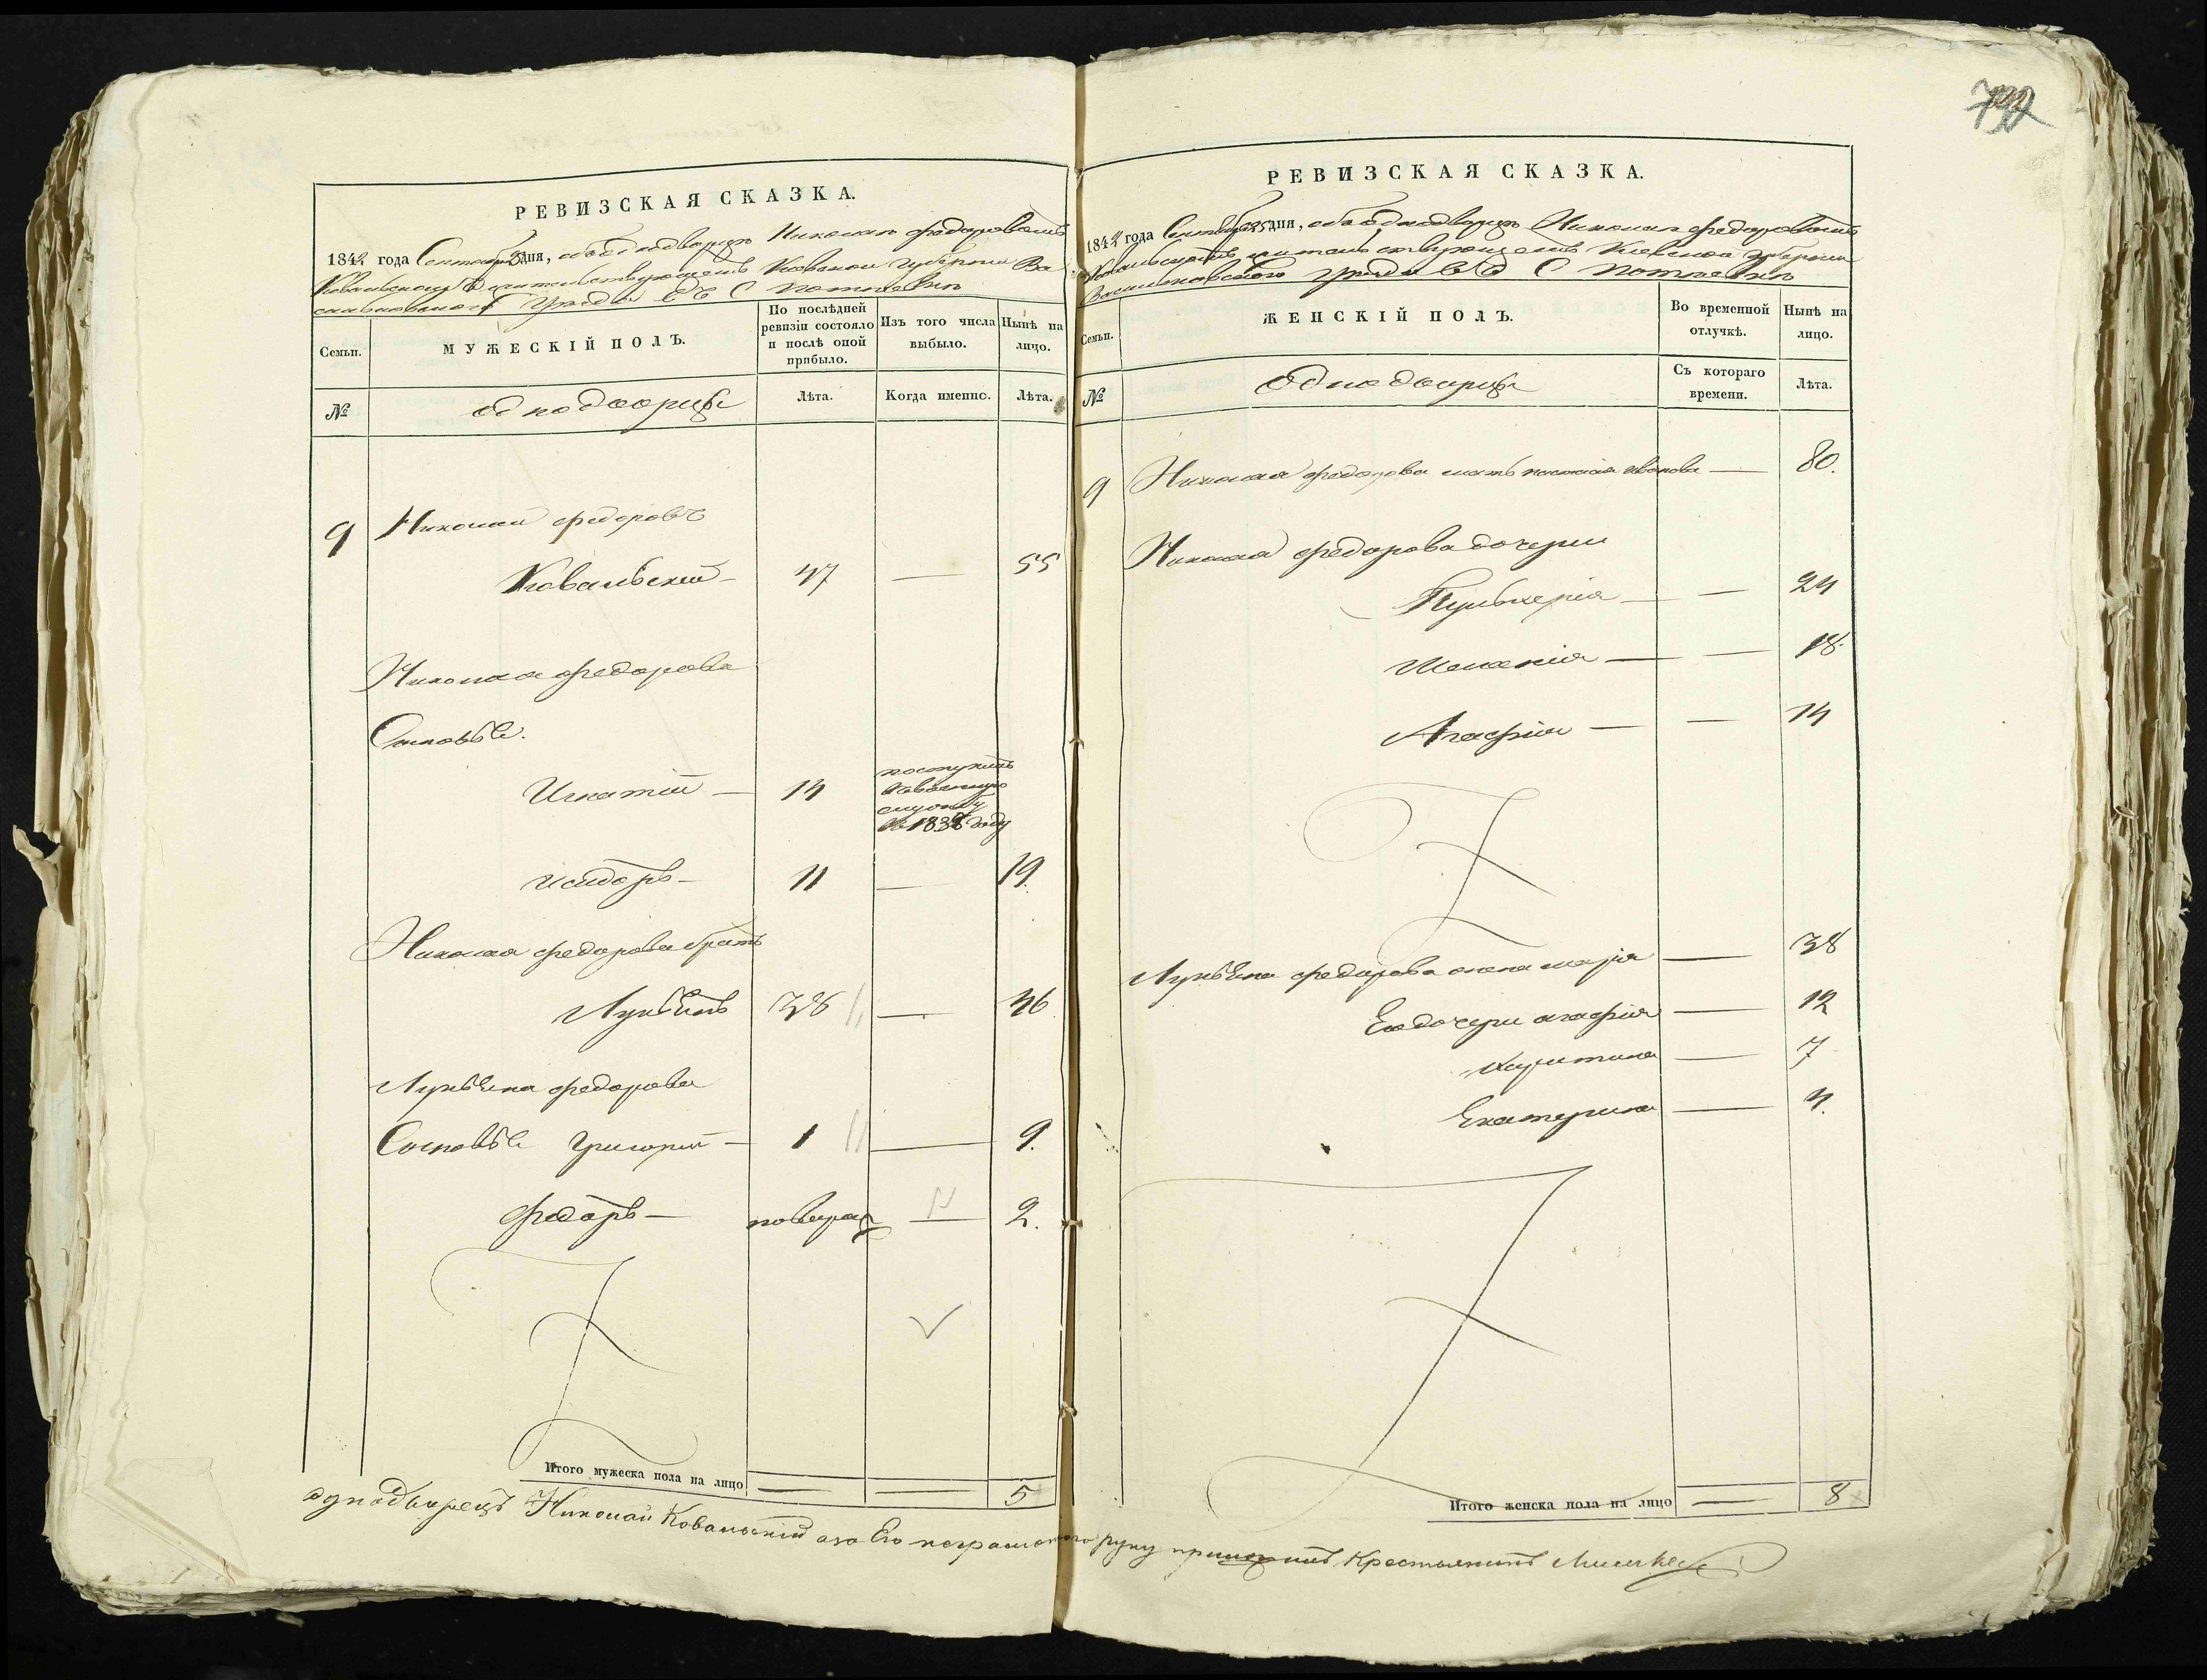 РЕВИЗСКАЯ СКАЗКА.
1842 года Сентября дня, объ однодворце Николае Федоровомъ
Ковальскому жительствующемъ Киевской Губернии Ва
сильковского Уезда въ С
Семьи.
МУЖЕСКІЙ ПОЛЪ.
По послѣдней ревизіи состояло и послѣ оной прибыло.
Изъ того числа выбыло.
Нынѣ на лицо.
№
однодворцы
Лѣта.
Когда именно.
Лѣта.
9 Николай Федоровъ
Ковальский 47 — 55
Николая Федорова
Сыновья.
Игнатій — 14
поступилъ
въ военную
службу
въ 1838 году
Исидоръ — 11 — 19.
Николая Федорова братъ
Лукьянъ 38 — 46
Лукьяна Федорова
Сыновья Григорий — 1 — 9.
Федоръ — — 2.
Итого мужеска пола на лицо 5
792
РЕВИЗСКАЯ СКАЗКА.
1842 года Сентября 25 дня, объ однодворце Николае Федоровомъ
Ковальскомъ жительствующемъ Киевской Губернии
Васильковского Уезда въ С
Семьи.
ЖЕНСКІЙ ПОЛЪ.
Во временной отлучкѣ.
Нынѣ на лицо.
№
Однодворцы
Съ котораго времени.
Лѣта.
9 Николая Федорова мать Настасія Иванова — 80.
Николая Федорова дочери
Пульхерія — — 24
Меланія — — 18
Агафия — — 14
Лукьяна Федорова жена Марія — 38
Его дочери Агафия — 12
Харитина — 7
Екатерина — 4.
Итого женска пола на лицо 8
Однодворецъ Николай Ковальский а за Его неграмотного руку приложилъ Крестьянинъ